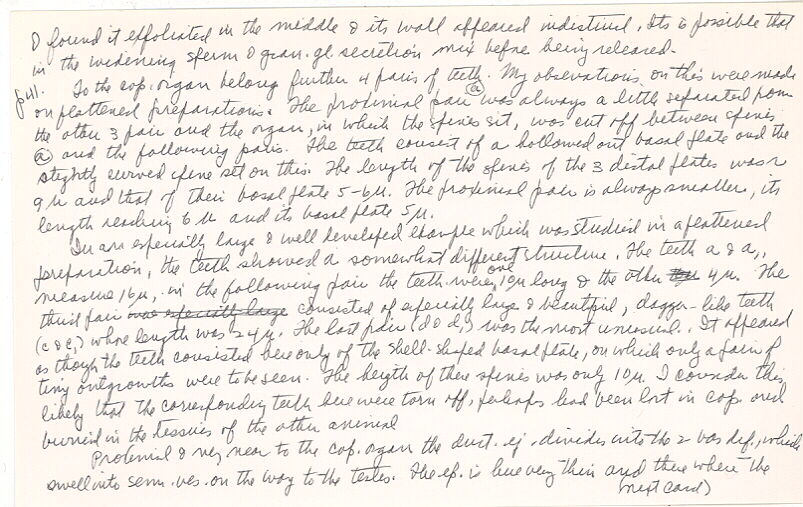 I found it exfoliated in the middle & its wall appeared indistinct. It is possible that
in the widening sperm & gran. gl. secretion mix before being released.
p41. To the cop. organ belong further 4 pairs of teeth. My observations on this were made
on flattened preparations. The proximal pair (a) was always a little separated from
the other 3 pair and the organ, in which the spines sit, was cut off between spines
(a) and the following pairs. The teeth consist of a hollowed out basal plate and the
slightly curved spine set on this. The length of the spines of the 3 distal plates was ~
9µ and that of their basal plate 5-6µ. The proximal pair is always smaller, its
length reaching 6µ and its basal plate 5µ.
In an especially large & well developed example which was studied in a flattened
preparation, the teeth showed a somewhat different structure. The teeth a & a,,
measure 16µ, in the following pair the teeth were, one 10µ long & the other 4µ. The
third pair was especially large consisted of especially large & beautiful, dagger-like teeth
(c & c,) whose length was 24µ. The last pair (d & d,) was the most unusual. It appeared
as though the teeth consisted here only of the shell-shaped basal plate, on which only a pair of
tiny outgrowths were to be seen. The height of these spines was only 10µ. I consider this
likely that the corresponding teeth here were torn off, perhaps had been lost in cop. and
buried in the tissues of the other animal
Proximal & very near to the cop. organ the duct. ej. divides into the 2 vas def., which
swell into sem. ves. on the way to the testes. The ep. is here very thin and there where the
(next card)